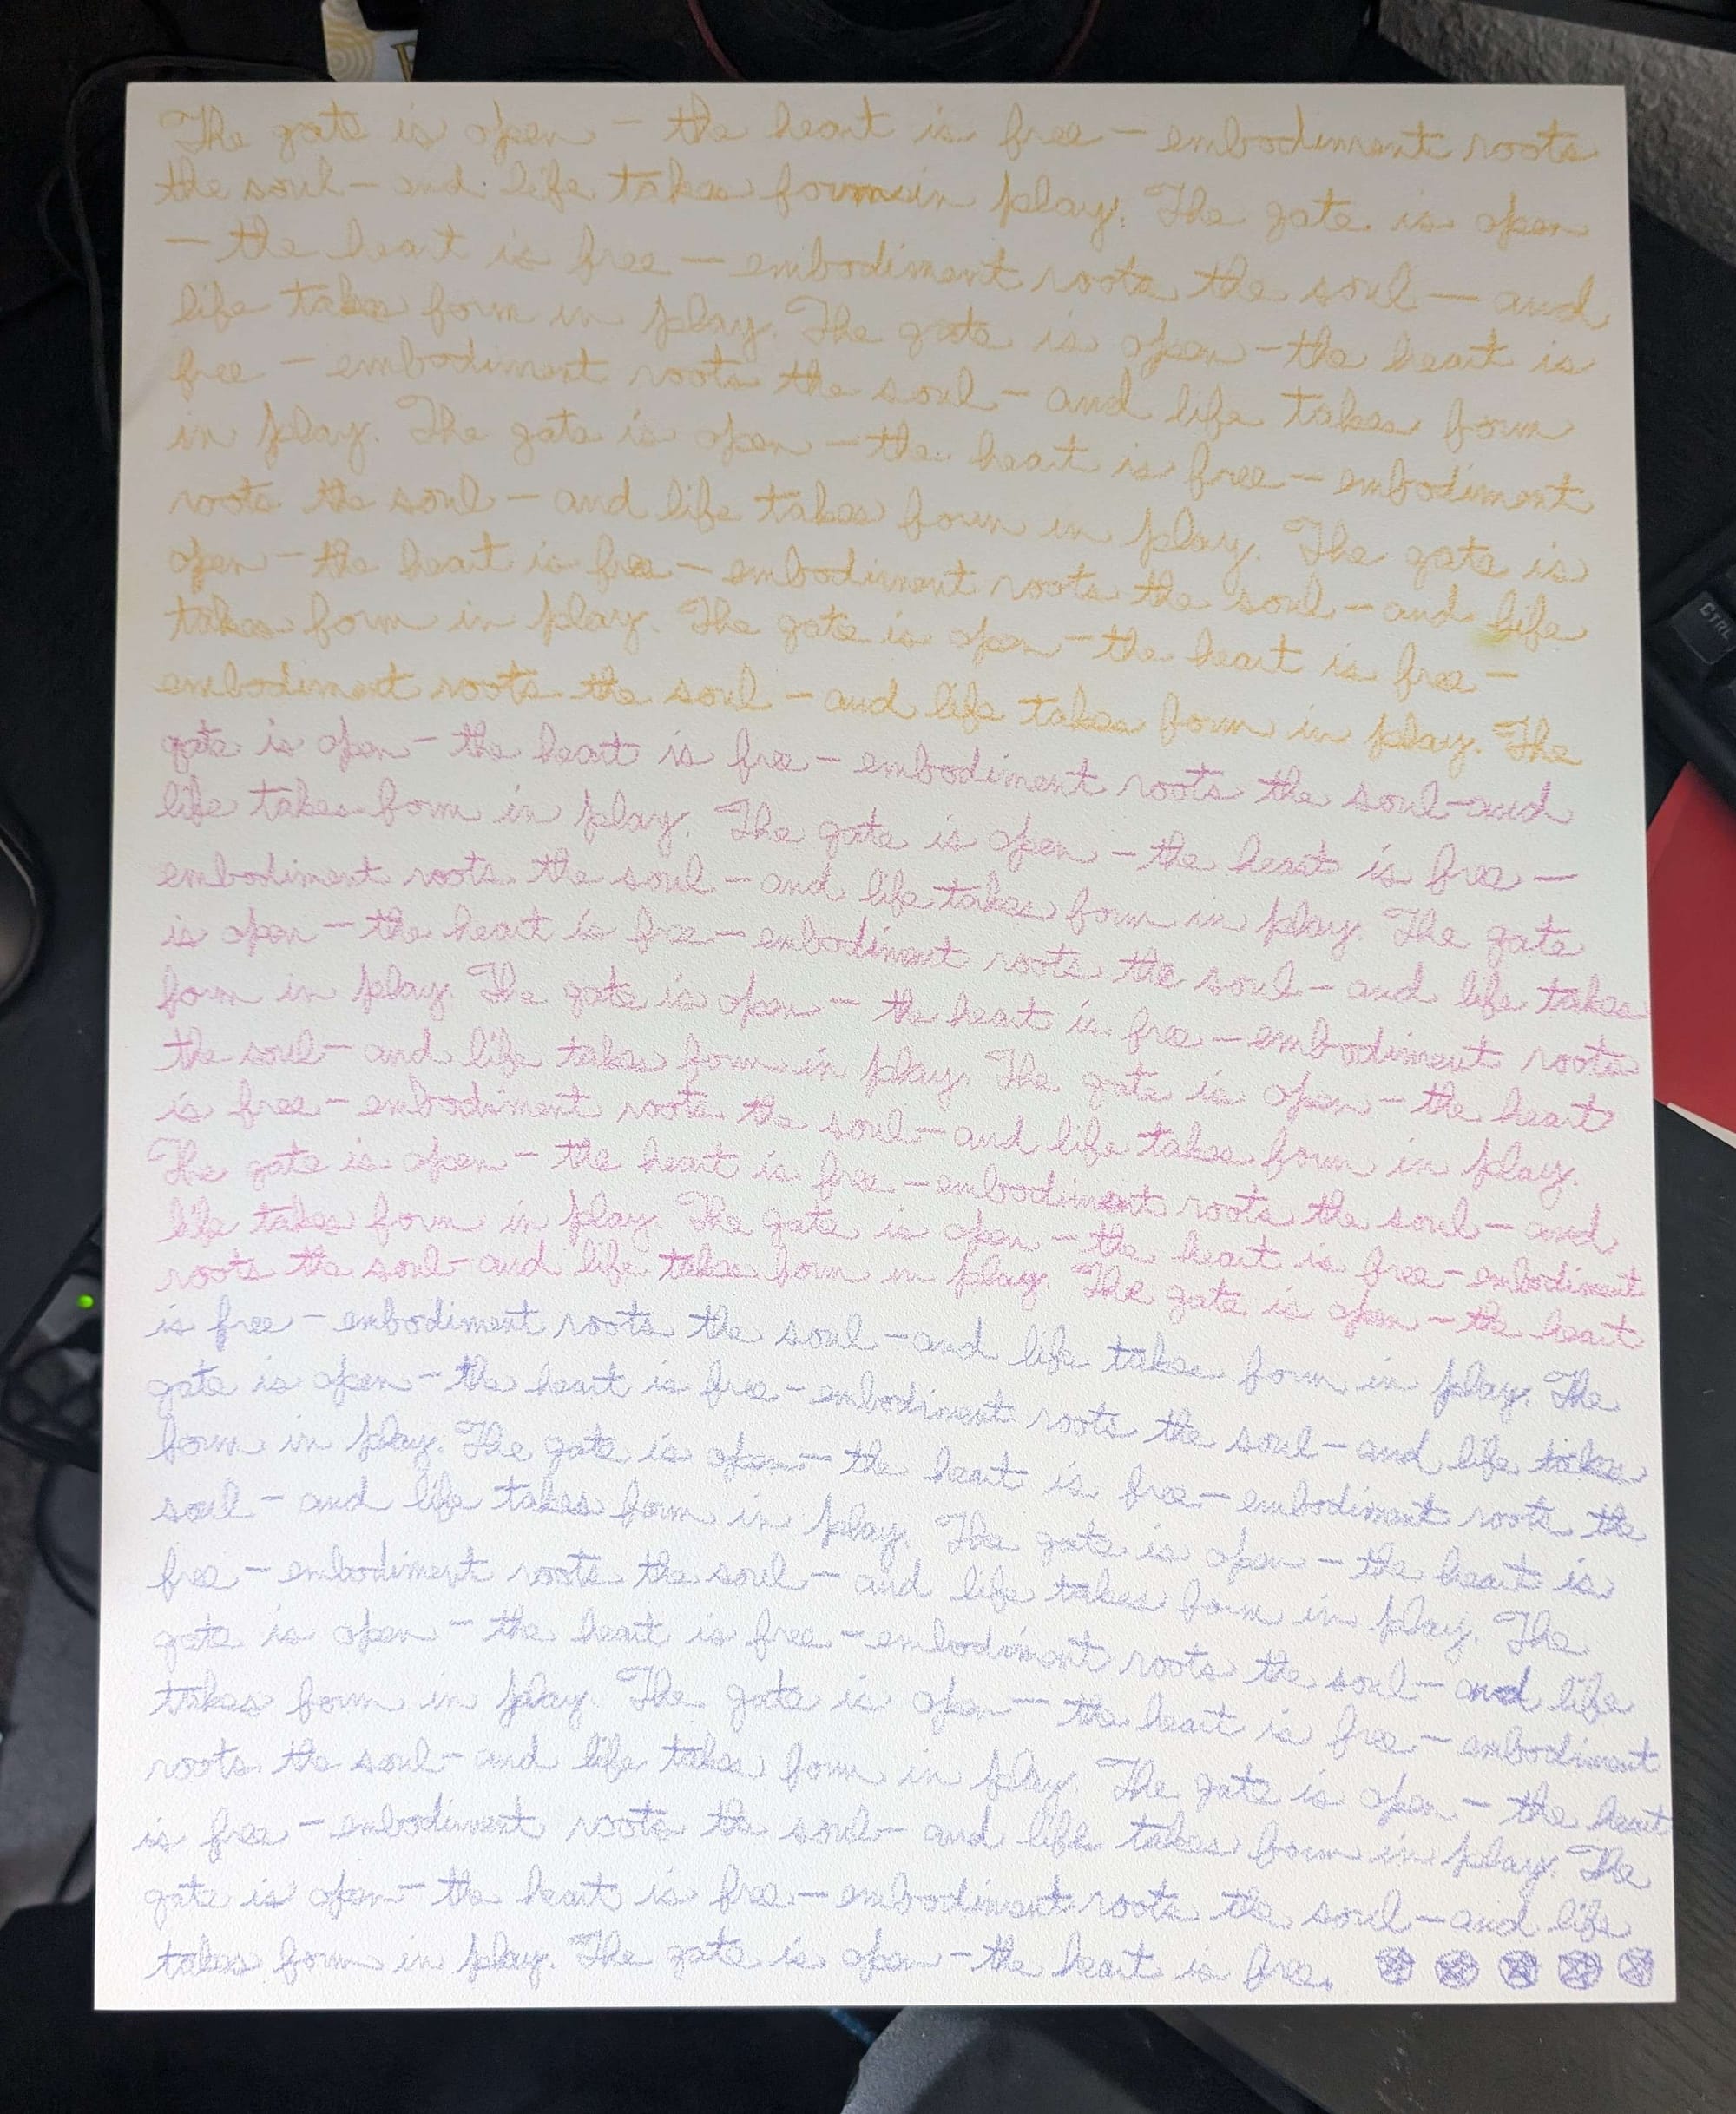 The gate is open - the heart is free - embodiment roots
the soul - and life takes form in play. The gate is open
- the heart is free - embodiment roots the soul - and
life takes form in play. The gate is open - the heart is
free - embodiment roots the soul - and life takes form
in play. The gate is open - the heart is free - embodiment
roots the soul - and life takes form in play. The gate is
open - the heart is free - embodiment roots the soul - and life
takes form in play. The gate is open - the heart is free -
embodiment roots the soul - and life takes form in play. The
gate is open - the heart is free - embodiment roots the soul - and
life takes form in play. The gate is open - the heart is free -
embodiment roots the soul - and life takes form in play. The gate
is open - the heart is free - embodiment roots the soul - and life takes
form in play. The gate is open - the heart is free - embodiment roots
the soul - and life takes form in play. The gate is open - the heart
is free - embodiment roots the soul - and life takes form in play.
The gate is open - the heart is free - embodiment roots the soul - and
life takes form in play. The gate is open - the heart is free - embodiment
roots the soul - and life takes form in play. The gate is open - the heart
is free - embodiment roots the soul - and life takes form in play. The
gate is open - the heart is free - embodiment roots the soul - and life takes
form in play. The gate is open - the heart is free - embodiment roots the
soul - and life takes form in play. The gate is open - the heart is
free - embodiment roots the soul - and life takes form in play. The
gate is open - the heart is free - embodiment roots the soul - and life
takes form in play. The gate is open - the heart is free - embodiment
roots the soul - and life takes form in play. The gate is open - the heart
is free - embodiment roots the soul - and life takes form in play. The
gate is open - the heart is free - embodiment roots the soul - and life
takes form in play. The gate is open - the heart is free.
CTRL